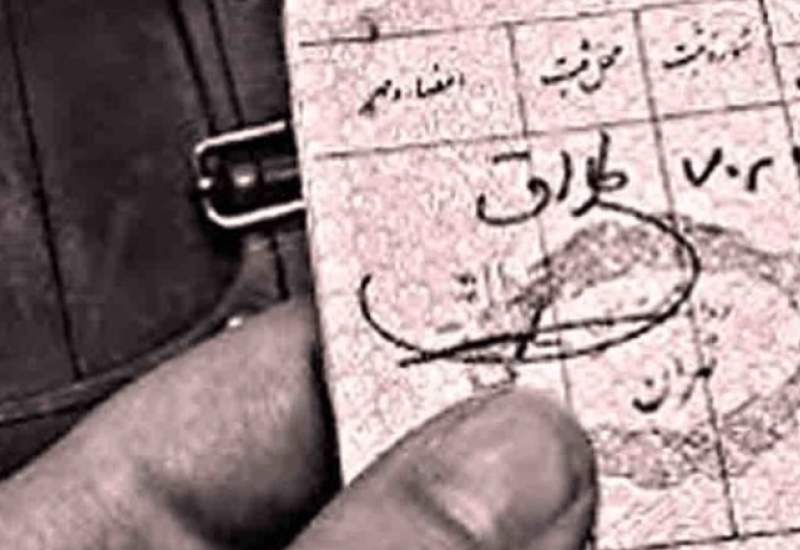 شماره ثبت محل ثبت امضاء و مهر
۷۰۲ طلاق
تهران